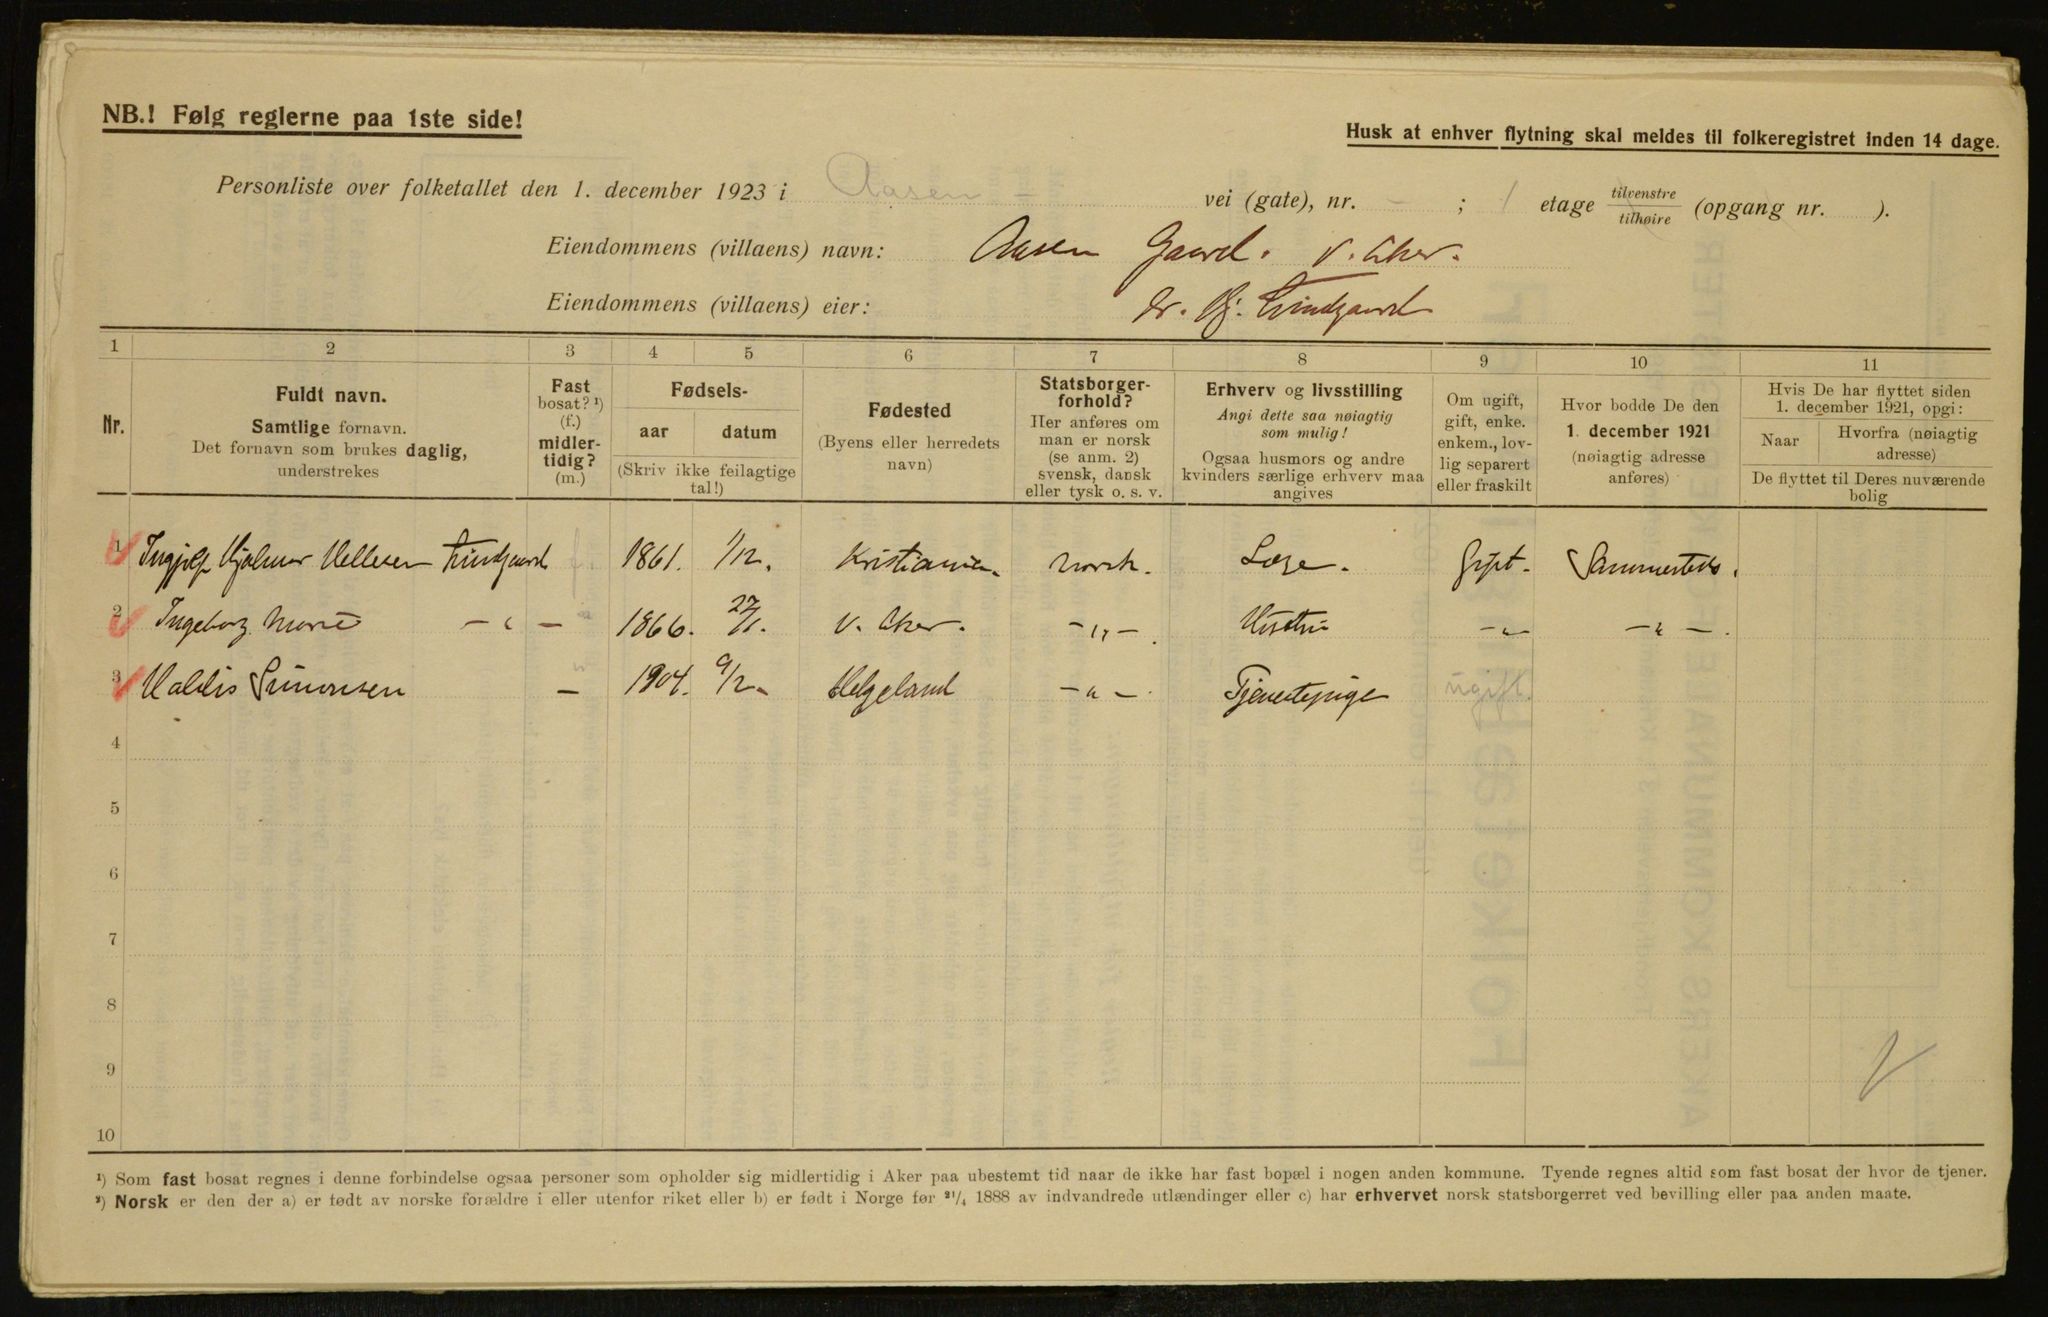 NB.! Følg reglerne paa 1ste side!
Husk at enhver flytning skal meldes til folkeregistret inden 14 dage.
Personliste over folketallet den 1. december 1923 i Aasen vei (gate), nr. – ; 1 etage tilvenstre tilhøire (opgang nr. ).
Eiendommens (villaens) navn: Aasen Gaard. V. Aker.
Eiendommens (villaens) eier: Dr. Hj. Trindgaard
1 2 3 4 5 6 7 8 9 10 11
Nr.
Fuldt navn.
Samtlige fornavn.
Det fornavn som brukes daglig,
understrekes
Fast
bosat? ¹)
(f.)
midler-
tidig?
(m.)
Fødsels-
aar datum
(Skriv ikke feilagtige
tal!)
Fødested
(Byens eller herredets
navn)
Statsborger-
forhold?
Her anføres om
man er norsk
(se anm. 2)
svensk, dansk
eller tysk o. s. v.
Erhverv og livsstilling
Angi dette saa nøiagtig
som mulig!
Ogsaa husmors og andre
kvinders særlige erhverv maa
angives
Om ugift,
gift, enke.
enkem., lov-
lig separert
eller fraskilt
Hvor bodde De den
1. december 1921
(nøiagtig adresse
anføres)
Hvis De har flyttet siden
1. december 1921, opgi:
Naar
Hvorfra (nøiagtig
adresse)
De flyttet til Deres nuværende
bolig
1 Hjalmar Trindgaard 1861. 1/12. Kristiania. norsk. Læge. Gift. Sammesteds.
2 Ingeborg Marie – " – 1866. 27/1. V. Aker. – " – Hustru – " – – " –
3 Valdis Simonsen – 1904. 9/2. Helgeland – " – Tjenestepige ugift.
4
5
6
7
8
9
10
¹) Som fast bosat regnes i denne forbindelse ogsaa personer som opholder sig midlertidig i Aker paa ubestemt tid naar de ikke har fast bopæl i nogen anden kommune. Tyende regnes altid som fast bosat der hvor de tjener.
²) Norsk er den der a) er født av norske forældre i eller utenfor riket eller b) er født i Norge før ²¹/₄ 1888 av indvandrede utlændinger eller c) har erhvervet norsk statsborgerret ved bevilling eller paa anden maate.